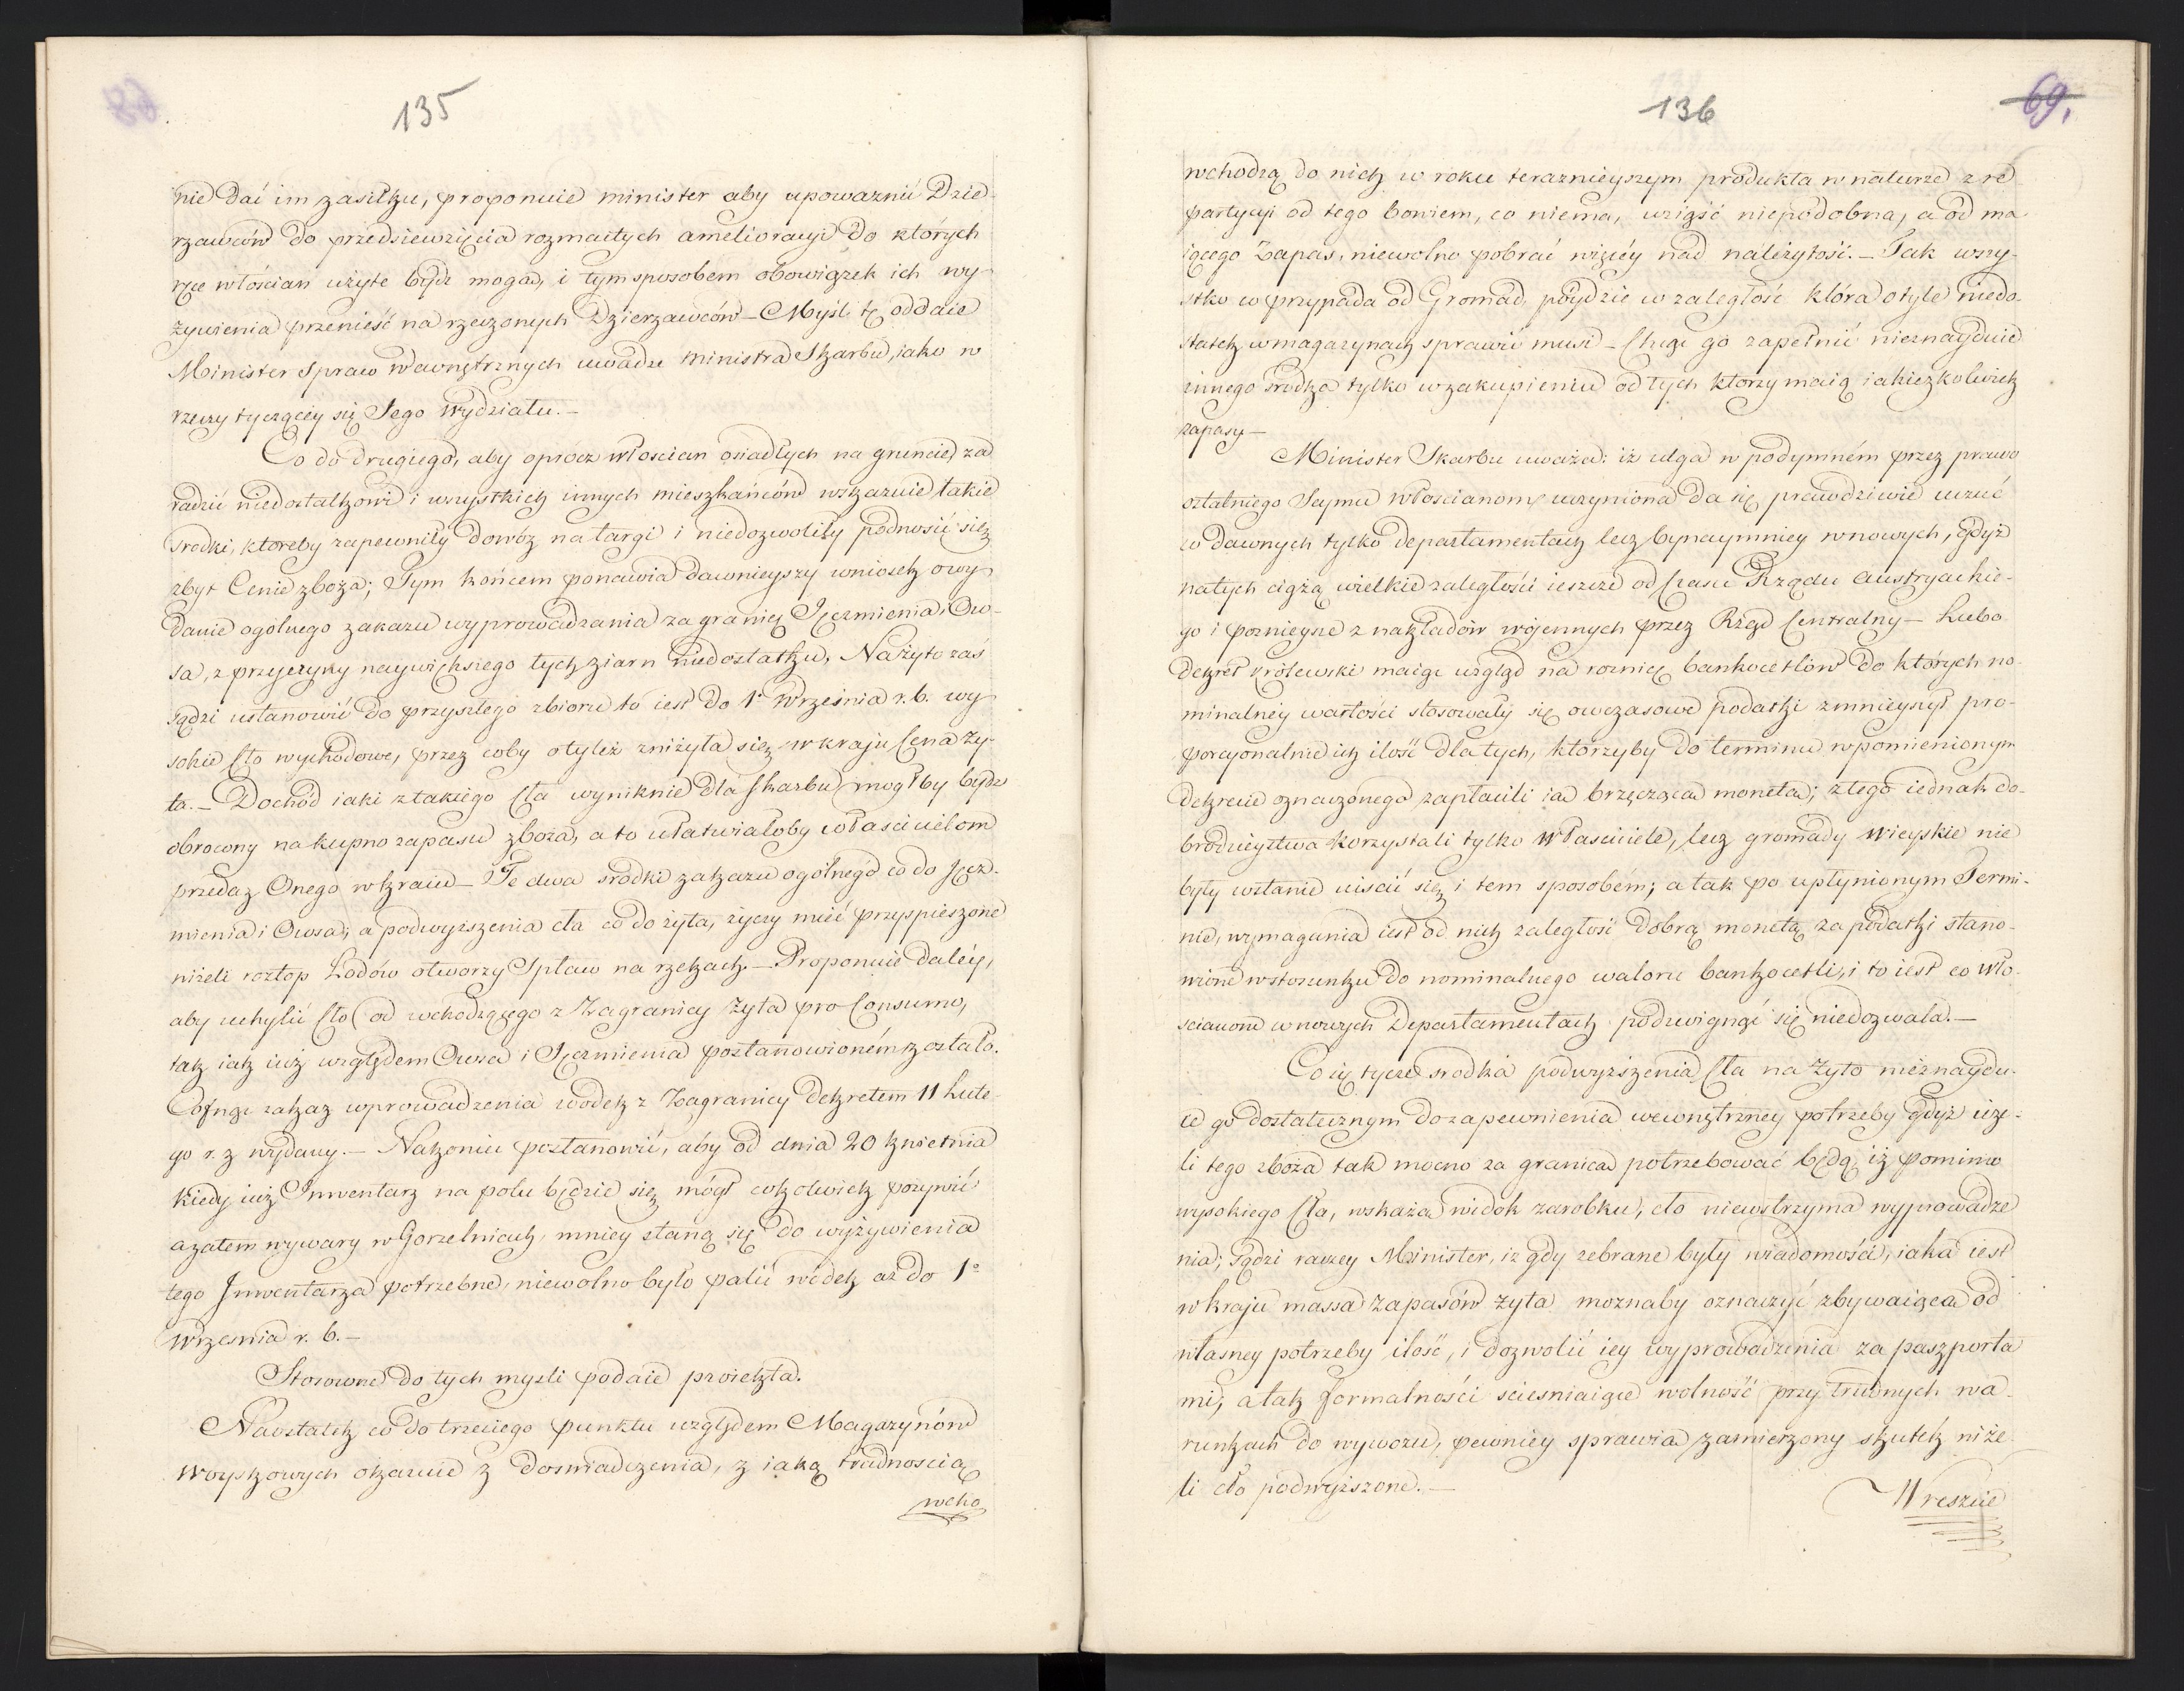 135
nie dać im zasiłku, proponuie minister aby upoważnić Dzier-
rzawców do przedsiewzięcia rozmaitych ameliorayi do których
ręce włościan użyte bydź mogą, i tym sposobem obowiązek ich wy-
żywienia przenieść na rzeczonych Dzierzawców – Myśl tę oddaie
Minister Spraw Wewnętrznych uwadze Ministra Skarbu, iako w
rzeczy tyczącéy się Jego Wydziału. –
Co do drugiego, aby oprócz włościan osiadłych na gruncie, za
radzić niedostatkowi i wszystkich innych mieszkańców wskazuie takie
srodki, któreby zapewniły dowóz na targi i niedozwoliły podnosić się
zbyt Cenie zboża; Tym końcem ponawia dawnieyszy wniosek owy
danie ogólnego zakazu wyprowadzania za granicę Jęczmienia, Ow-
sa, z przyczyny naywiększego tych ziarn niedostatku, Na żyto zaś
sądzi ustanowić do przyszłego zbioru to iest do 1º Września r. b. wy
sokie Cło wychodowe, przez coby otyleż zniżyła się w kraju Cena ży-
ta. – Dochód iaki z takiego Cła wyniknie dla Skarbu mogłby bydź
obrocony na kupno zapasu zboża, a to ułatwiałoby właścicielom
przedaż Onego w kraiu – Te dwa srodki zakazu ogólnego co do Jęcz-
mienia i Owsa; a podwyższenia cła co do żyta, życzy mieć przyspieszone
niżeli roztop Lodów otworzy Spław na rzekach. – Proponuie daléy,
aby uchylić Cło od wchodzącego z Zagranicy żyta pro Consumo,
tak iak iuż względem Owsa i Jęczmienia postanowioném zostało.
Cofnąć zakaz wprowadzenia wódek z Zagranicy dekretem 11 Lute-
go r. z wydany. – Nakoniec postanowić, aby od dnia 20 kwietnia
kiedy iuż Inwentarz na polu będzie się mógł cokolwiek pożywić
a zatem wywary w Gorzelniach, mniey staną się do wyżywienia
tego Inwentarza potrzebne, niewolno było palić wódek aż do 1º
Września r. b. –
Stosowne do tych myśli podaie proiekta.
Naostatek co do trzeciego punktu względem Magazynów
Woyskowych okazuie z doswiadczenia, z iaką trudnoscią
wcho
136
69.
wchodzą do nich w roku teraznieyszym produkta w naturze z re
partycyi od tego bowiem, co niema, wziąść niepodobna, a od ma
iącego Zapas, niewolno pobrać więcéy nad należytość. – Tak wszy-
stko co przypada od Gromad, póydzie w zaległość która otyle niedo-
statek w magazynach sprawić musi – Chcąc go zapełnić nieznayduie
innego środka tylko w zakupieniu od tych ktorzy maią iakieżkolwiek
zapasy –
Minister Skarbu uważa: iż ulga w podymném przez prawo
ostatniego Seymu włościanom uczyniona da się prawdziwie uczuć
w dawnych tylko departamentach lecz bynaymniey w nowych, gdyż
na tych ciążą wielkie zaległości ieszcze od Czasu Rządu austryackie-
go i poznieysze z nakładów wojennych przez Rząd Centralny – Lubo
dekret królewski maiąc wzgląd na roznicę bankocetlów do których no-
minalnéy wartości stosowały się owczasowe podatki zmnieyszył pro-
porcyonalnie ich ilość dla tych, którzyby do terminu wpomienionym
dekrecie oznaczonego zapłacili ią brzęczącą monetą; z tego iednak do-
brodzieystwa korzystali tylko Właściciele, lecz gromady wieyskie nie
były wstanie uiścić się i tem sposobém; a tak po upłynionym Termi-
nie, wymagania iest od nich zaległość dobrą monetą za podatki stano-
wione w stosunku do nominalnego waloru bankocetli, i to iest co Wło-
scianom w nowych Departamentach podzwignąć się niedozwala. –
Co się tycze srodka podwyższenia Cła na żyto nieznaydu-
ie go dostatecznym do zapewnienia wewnętrzney potrzeby gdyż ieże-
li tego zboża tak mocno za granicą potrzebować będą, iż pomimo
wysokiego Cła, wskaża widok zarobku, cło niewstrzyma wyprowadze
nia; sądzi raczey Minister, iż gdy zebrane były wiadomości, iaka iest
w kraju massa zapasów żyta moznaby oznaczyć zbywaiącą od
własney potrzeby ilość, i dozwolić iey wyprowadzenia za paszporta
mi, a tak formalności scieśniaiące wolność przy trudnych wa-
runkach do wywozu, pewniey sprawia zamierzony skutek niże-
li cło podwyższone. –
Wreszcie